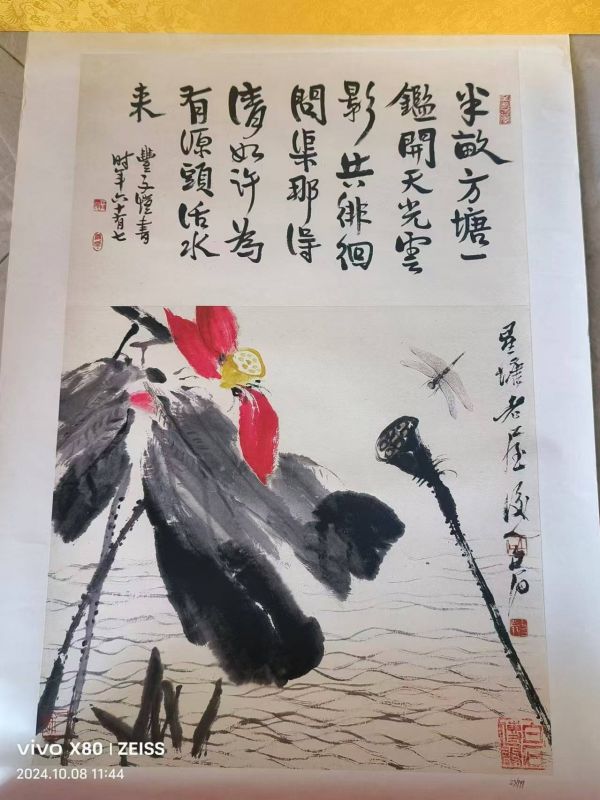 半畝方塘一
鑑開天光雲
影共徘徊
問渠那得
清如许為
有源頭活水
来
豐子愷書
时年六十有七
星塘老屋後人白石
vivo X80 | ZEISS
2024.10.08 11:44